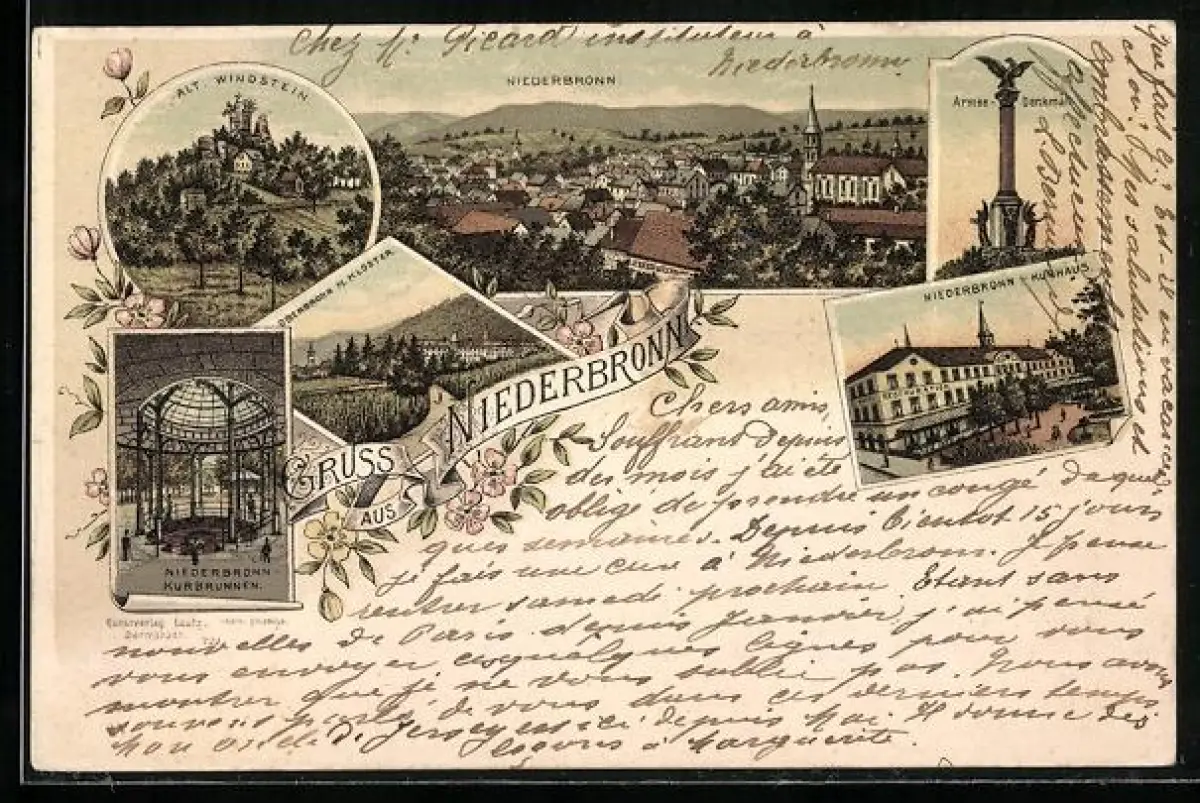 Chez Mr Picard instituteur à
Niederbronn.
NIEDERBRONN
ALT WINDSTEIN
Armee-Denkmal
NIEDERBRONN - KURHAUS
OBERBRONN M. KLOSTER
GRUSS
AUS
NIEDERBRONN
NIEDERBRONN-
KURBRUNNEN.
Kunstverlag Lautz,
Darmstadt.
Chers amis,
Souffrant depuis
des mois j'ai été
obligé de prendre un congé de quel
ques semaines. Depuis bientôt 15 jours
je fais une cure à Niederbronn. Je pense
rentrer samedi prochain. Etant sans
nouvelles de Paris depuis Janvier j'ai pensé
vous envoyer ces quelques lignes pour vous
montrer que je ne vous oublie pas. Nous avons
souvent parlé de vous dans ces derniers temps
Mon oncle de Jersey est ici depuis Mai. Il donne des
leçons à Marguerite.
Que fait G.? Est-il en vacances
et où? Mes salutations et
embrassements
affectueux